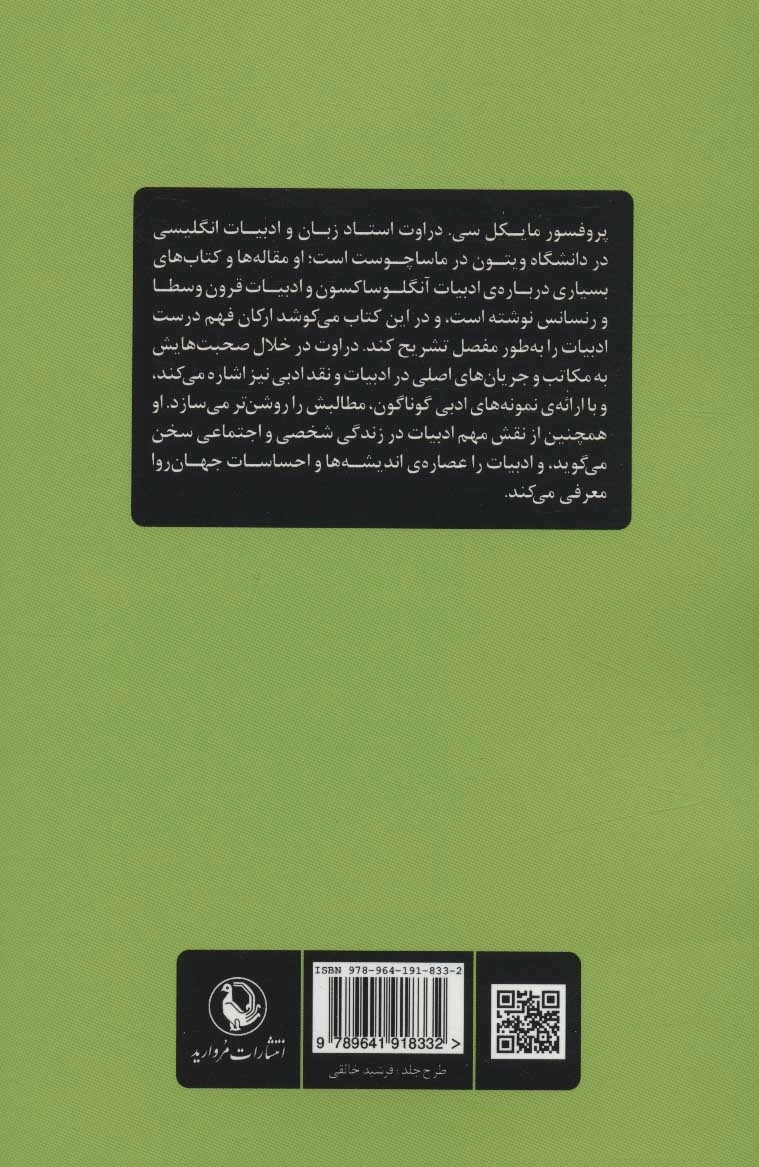 پروفسور مایکل سی. دراوت استاد زبان و ادبیات انگلیسی
در دانشگاه ویتون در ماساچوست است؛ او مقاله‌ها و کتاب‌های
بسیاری درباره‌ی ادبیات آنگلوساکسون و ادبیات قرون وسطا
و رنسانس نوشته است، و در این کتاب می‌کوشد ارکان فهم درست
ادبیات را به‌طور مفصل تشریح کند. دراوت در خلال صحبت‌هایش
به مکاتب و جریان‌های اصلی در ادبیات و نقد ادبی نیز اشاره می‌کند،
و با ارائه‌ی نمونه‌های ادبی گوناگون، مطالبش را روشن‌تر می‌سازد. او
همچنین از نقش مهم ادبیات در زندگی شخصی و اجتماعی سخن
می‌گوید، و ادبیات را عصاره‌ی اندیشه‌ها و احساسات جهان‌روا
معرفی می‌کند.
ISBN 978-964-191-833-2
9 789641 918332 >
طرح جلد: فرشید خالقی
انتشارات مروارید